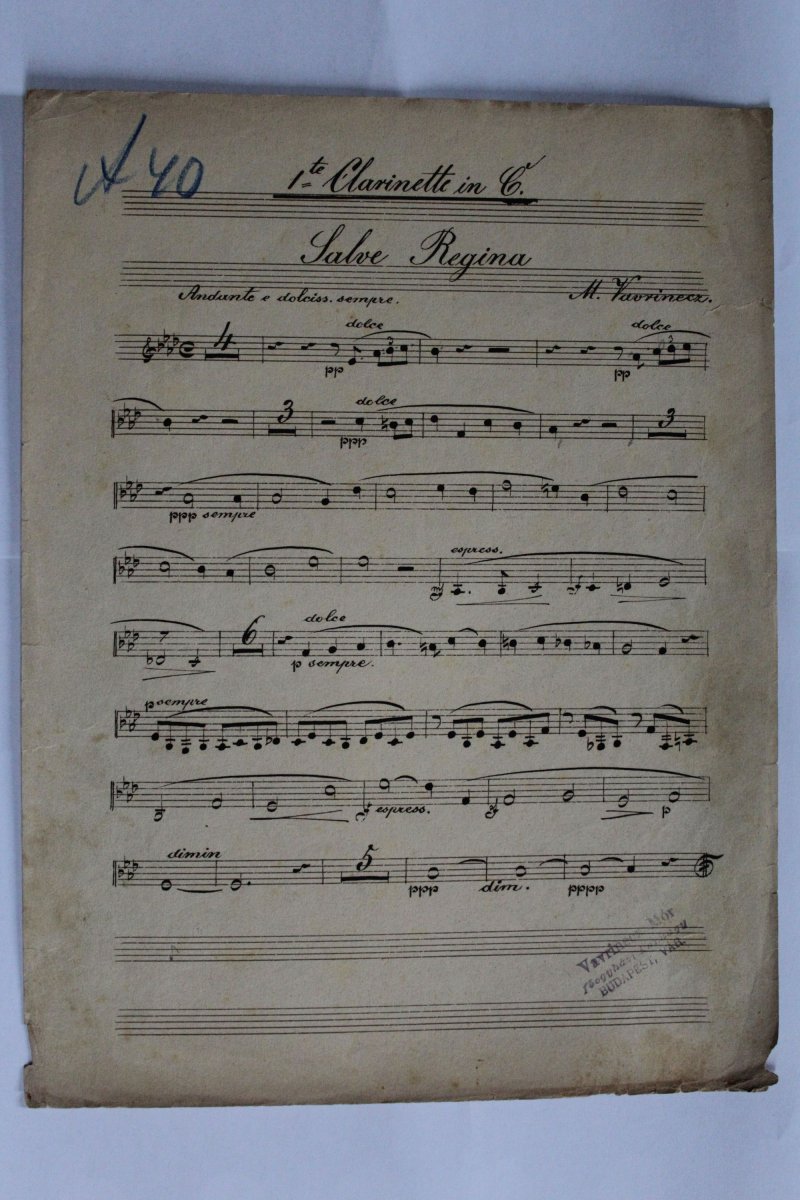 A 40
1te Clarinette in C.
Salve Regina
Andante e dolciss. sempre.
M. Vavrinecz.
dolce dolce
4 3
pp pp
dolce
3 3
ppp
ppp sempre
espress.
f f
7 6 dolce
p sempre.
p sempre
f espress. f p
dimin
5
ppp dim. pppp
Vavrinecz Mór
BUDAPEST, VÁR.